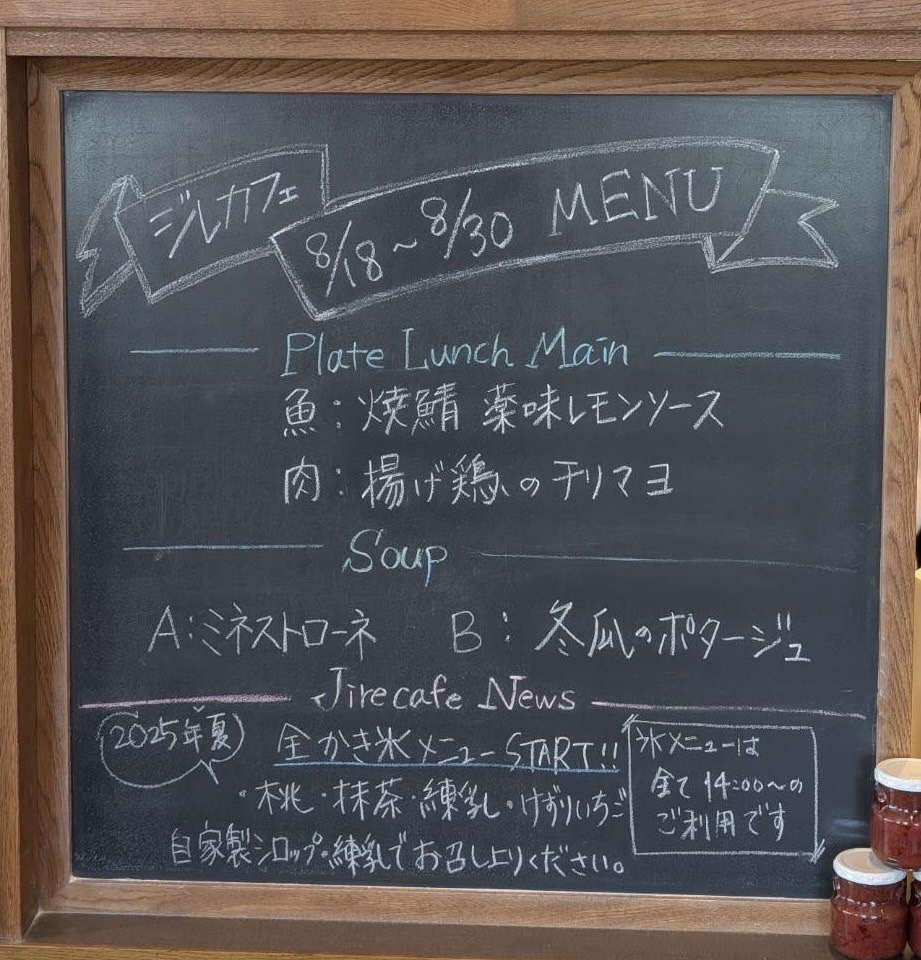 ジルカフェ 8/18~8/30 MENU
Plate Lunch Main
魚:焼鯖 薬味レモンソース
肉:揚げ鶏のチリマヨ
Soup
A:ミネストローネ B:冬瓜のポタージュ
Jirecafe News
2025年夏
全かき氷メニューSTART!!
・桃・抹茶・練乳・けずりいちご
自家製シロップ・練乳でお召し上りください。
氷メニューは
全て14:00~の
ご利用です